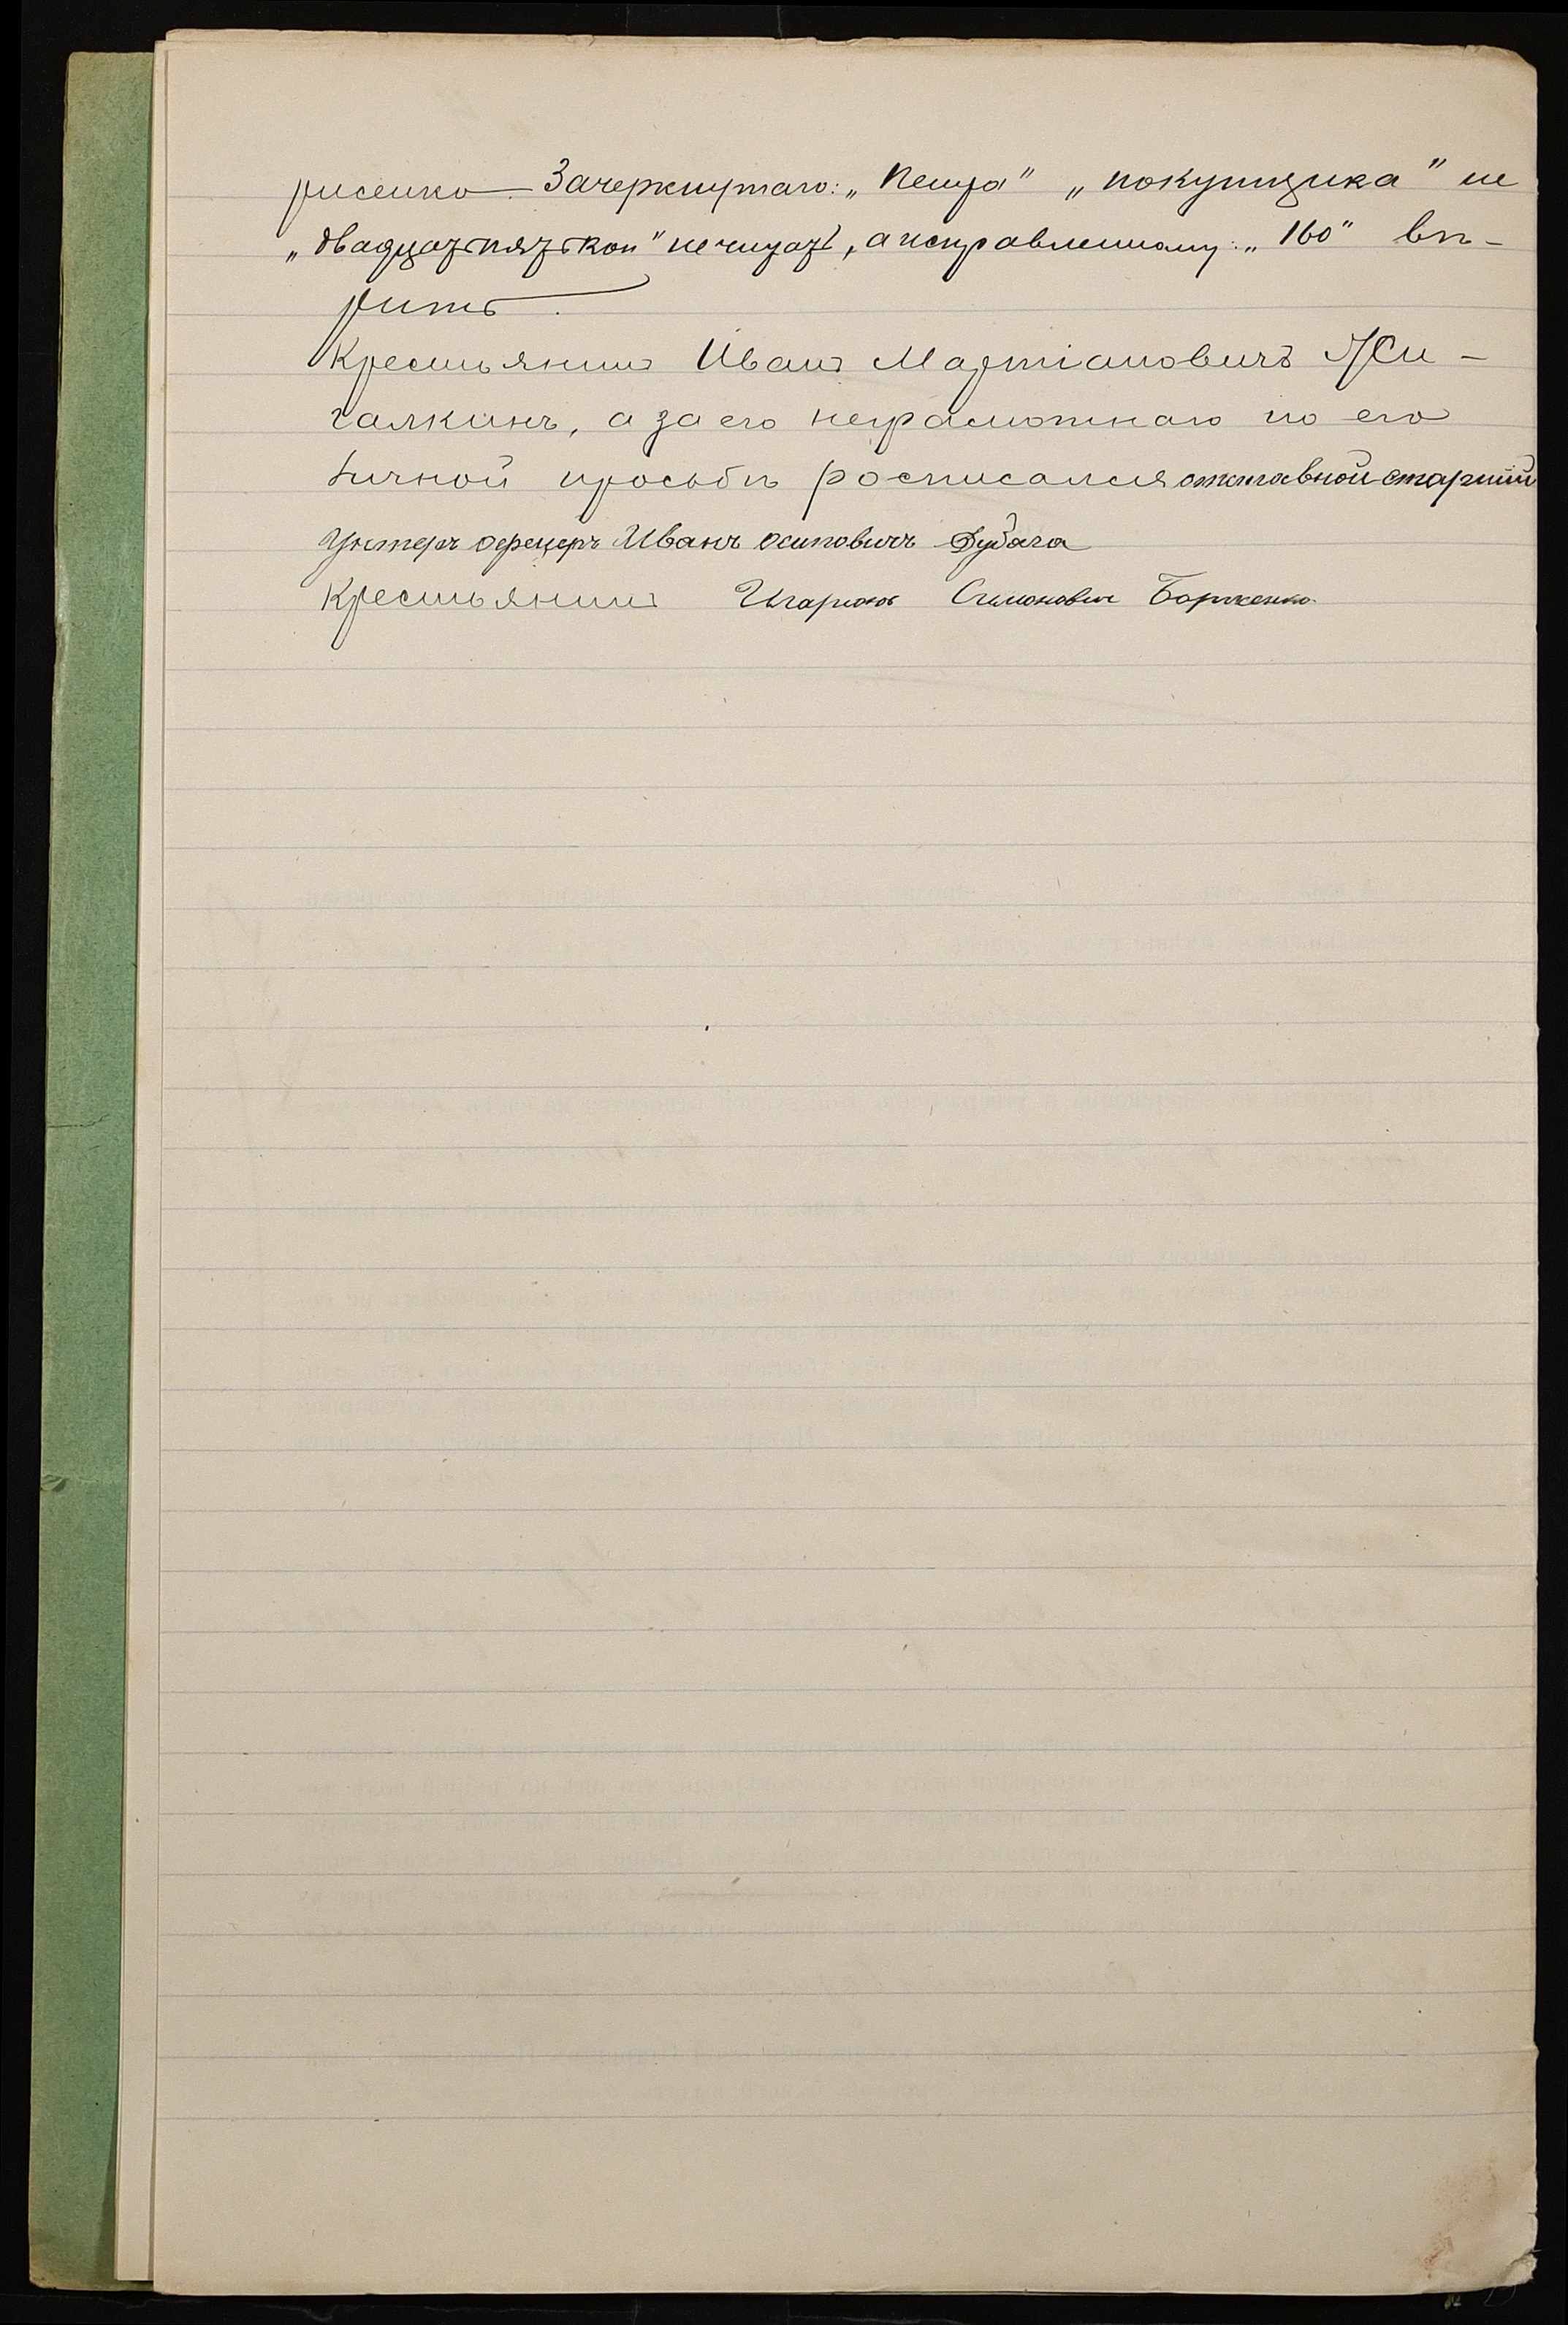 рисенко. Зачеркнутаго: „ „покупщика" и
„двадцать пять коп" не читать, а исправленному: „160" вѣ-
рить.
Крестьянинъ Иванъ Мартіановичъ Жи-
галкинъ, а за его неграмотнаго по его
личной просьбѣ росписался отставной старшій
Унтеръ офецеръ Иванъ Осиповичъ
Крестьянинъ Симонович Борисенко